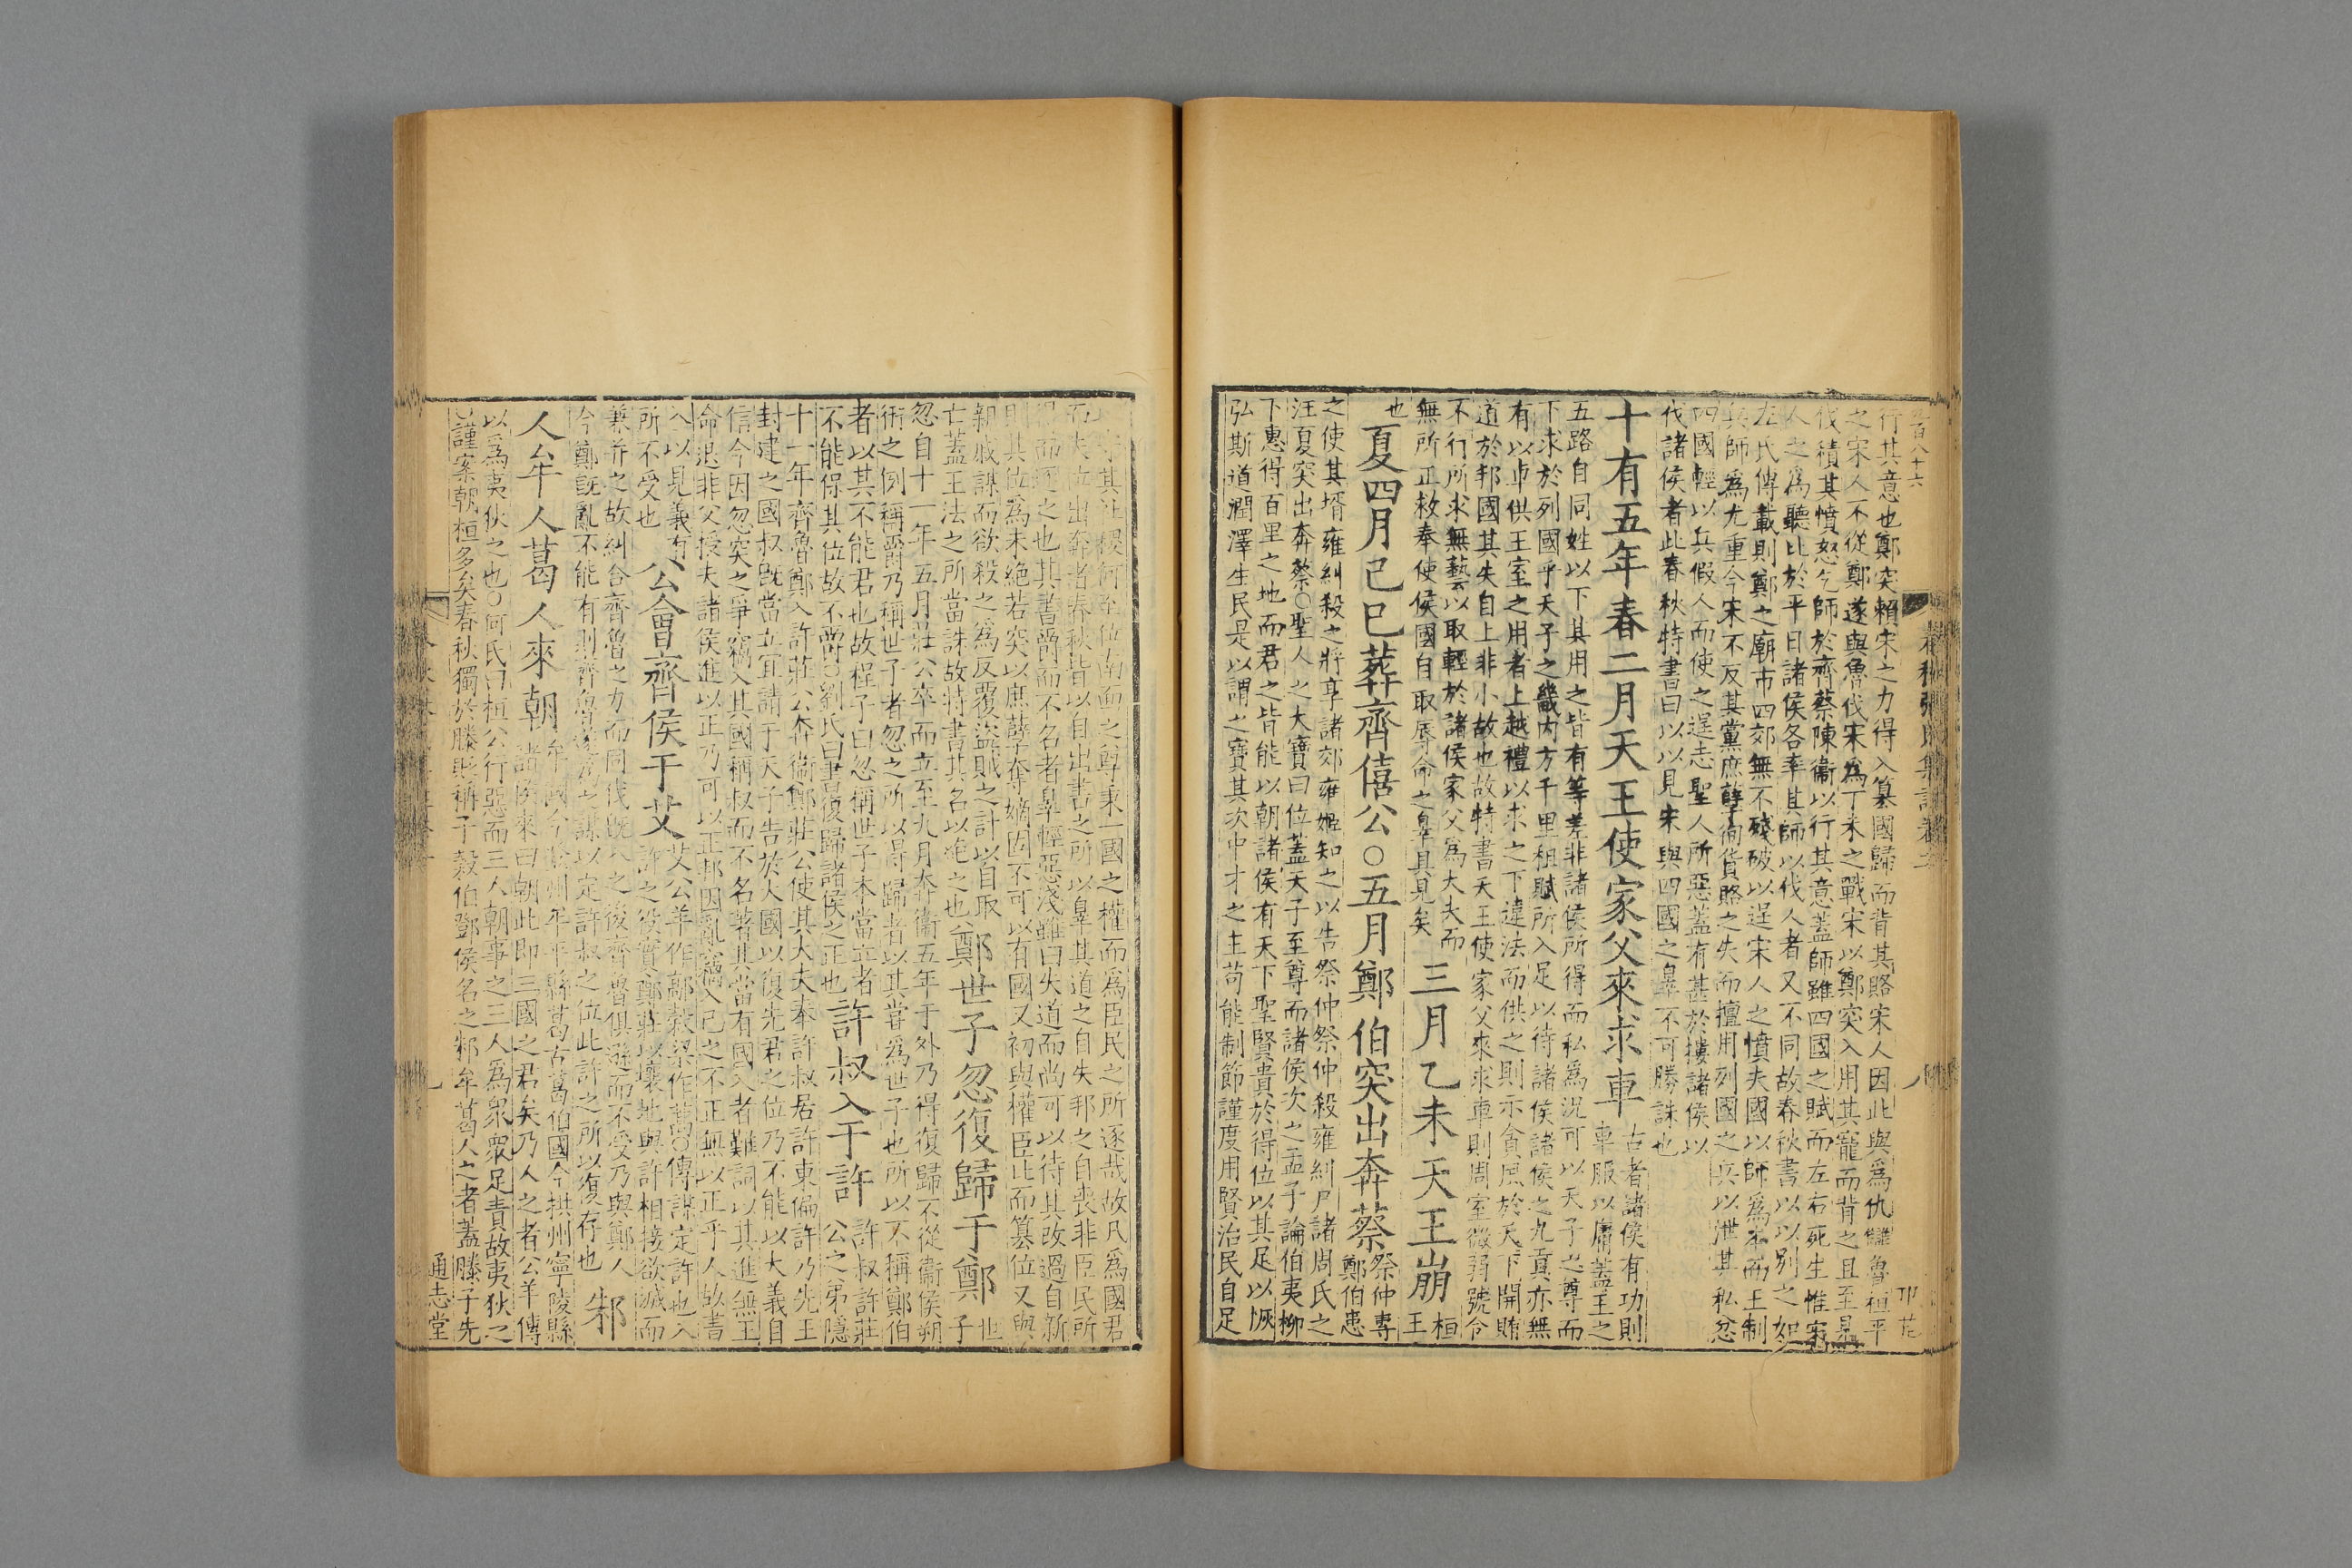 行其意也鄭突賴宋之力得入篡國歸而背其賂宋人因此與爲仇讎魯桓平
之宋人不從鄭遂與魯伐宋爲丁未之戰宋以鄭突入用其寵而背之且至是
伐積其憤怒乞師於齊蔡陳衞以行其意蓋師雖四國之賦而左右死生惟宋
人之爲聽比於平日諸侯各率其師以伐人者又不同故春秋書以以別之如
左氏傳載則鄭之廟市四郊無不殘破以逞宋人之憤夫國以師爲本而王制
兵師爲尤重今宋不反其黨庶孽徇貨賂之失而擅用列國之兵以泄其私忿
四國輕以兵假人而使之逞志聖人所惡蓋有甚於摟諸侯以
伐諸侯者此春秋特書曰以以見宋與四國之辠不可勝誅也
十有五年春二月天王使家父來求車 古者諸侯有功則
車服以庸蓋王之
五路自同姓以下其用之皆有等差非諸侯所得而私爲況可以天子之尊而
下求於列國乎天子之畿內方千里租賦所入足以待諸侯諸侯之九貢亦無
有以車供王室之用者上越禮以求之下違法而供之則示貪風於天下開賄
道於邦國其失自上非小故也故特書天王使家父來求車則周室微弱號令
不行所求無藝以取輕於諸侯家父爲大夫而
無所正救奉使侯國自取辱命之辠具見矣 三月乙未天王崩 桓
王
也 夏四月己巳葬齊僖公○五月鄭伯突出奔蔡 祭仲專
鄭伯患
之使其壻雍糾殺之將享諸郊雍姬知之以告祭仲祭仲殺雍糾尸諸周氏之
汪夏突出奔蔡○聖人之大寶曰位蓋天子至尊而諸侯次之孟子論伯夷柳
下惠得百里之地而君之皆能以朝諸侯有天下聖賢貴於得位以其足以恢
弘斯道潤澤生民是以謂之寶其次中才之主苟能制節謹度用賢治民自足
其社稷何至位南面之尊秉一國之權而爲臣民之所逐哉故凡爲國君
而失位出奔者春秋皆以自出出書之所以辠其道之自失邦之自喪非臣民所
得而逐之也其書爵而不名者辠輕惡淺雖曰失道而尚可以待其改過自新
明其位爲未絕若突以庶孽奪嫡固不可以有國又初與權臣比而篡位又與
親戚謀而欲殺之爲反覆盜賊之計以自取
亡蓋王法之所當誅故特書其名以絕之也 鄭世子忽復歸于鄭 世
子
忽自十一年五月莊公卒而立至九月奔衞五年于外乃得復歸不從衞侯朔
衎之例稱爵乃稱世子者忽之所以得歸者以其嘗爲世子也所以不稱鄭伯
者以其不能君也故程子曰忽稱世子本當立者
不能保其位故不爵○劉氏曰書復歸諸侯之正也 許叔入于許 許叔許莊
公之弟隱
十一年齊魯鄭入許莊公奔衞鄭莊公使其大夫奉許叔居許東偏許乃先王
封建之國叔旣當立宜請于天子告於大國以復先君之位乃不能以大義自
信今因忽突之爭竊入其國稱叔而不名著其當有國入者難詞以其進無王
命退非父授夫諸侯進以正乃可以正邦因亂竊入己之不正無以正乎人故書
入以見義有
所不受也 公會齊侯于艾 艾公羊作鄗穀梁作蒿○傳謀定許也入
許之役實鄭莊以壤地與許相接欲滅而
兼幷之故糾合齊魯之力而同伐旣入之後齊魯俱遜而不受乃與鄭人
今鄭旣亂不能有則齊魯謀以定許叔之位此許之所以復存也 邾
人牟人葛人來朝 牟國今州牟平縣葛古葛伯國今拱州寧陵縣
諸侯來曰朝此即三國之君矣乃人之者公羊傳
以爲夷狄之也○何氏曰桓公行惡而三人朝事之三人爲衆衆足責故夷狄之
謹案朝桓多矣春秋獨於滕貶稱子穀伯鄧侯名之邾牟葛人之者蓋滕子先
通志堂